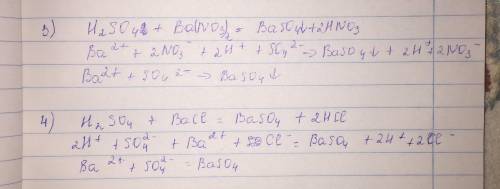 3) H₂SO₄ + Ba(NO₃)₂ = BaSO₄↓+2HNO₃
Ba²⁺ + 2NO₃⁻ + 2H⁺ + SO₄²⁻ → BaSO₄↓ + 2H⁺+2NO₃⁻
Ba²⁺ + SO₄²⁻ → BaSO₄↓
4) H₂SO₄ + BaCl = BaSO₄ + 2HCl
2H⁺ + SO₄²⁻ + Ba²⁺ + Cl⁻ = BaSO₄ + 2H⁺+2Cl⁻
Ba²⁺ + SO₄²⁻ = BaSO₄